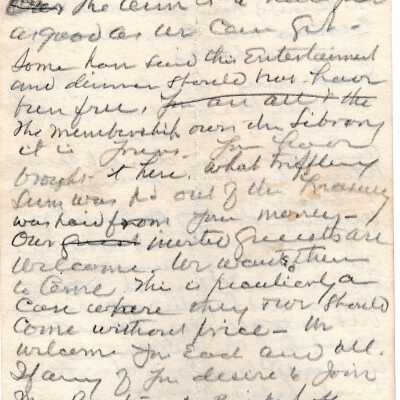 The Club is a
as good as we can get -
Some have said this Entertainment
and dinner should not have
been free. for all & the
The membership own the Library
it is yours. You have
brought it here. What trifling
Sum was pd out of the Treasury
was paid from your money -
Our guest invited guests are
Welcome. We want them
to come. This is peculiarly a
Case where they our should
Come without price - We
welcome you Each and all.
If any of you desire to Join